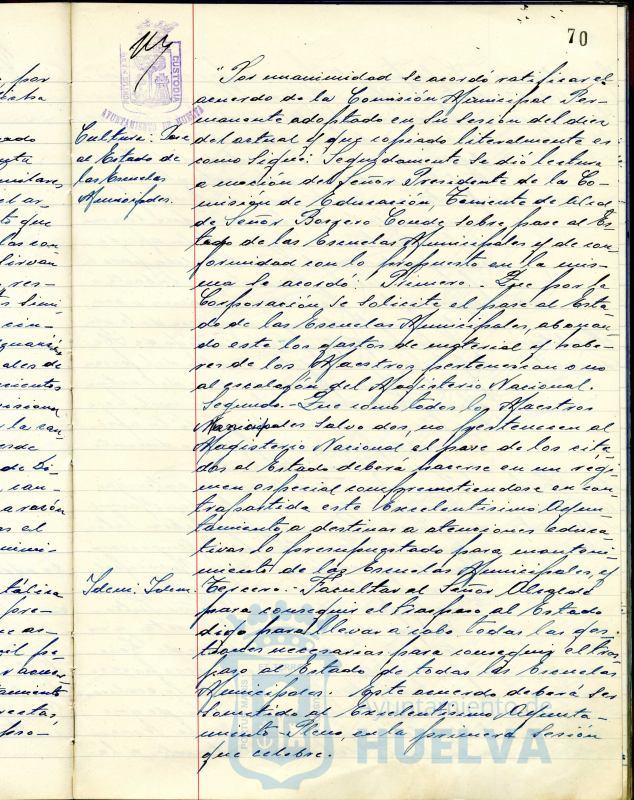 70
CUSTODIA
AYUNTAMIENTO DE HUELVA
Cultura: Pase
al Estado de
las Escuelas
Municipales.
"Por unanimidad se acordó ratificar el
acuerdo de la Comisión Municipal Per-
manente adoptado en su sesión del diez
del actual y que copiado literalmente es
como sigue: Seguidamente se dió lectura
a moción del Señor Presidente de la Co-
misión de Educación, Teniente de Alcal-
de Señor Borrero Conde sobre pase al Es-
tado de las Escuelas Municipales y de con-
formidad con lo propuesto en la mis-
ma se acordó: Primero.- Que por la
Corporación se solicite el pase al Esta-
do de las Escuelas Municipales, abonan-
do este los gastos de material y habe-
res de los Maestros pertenezcan o no
al escalafón del Magisterio Nacional.
Segundo.- Que como todos los Maestros
Municipales salvo dos, no pertenecen al
Magisterio Nacional el pase de los cita-
dos al Estado deberá hacerse en un régi-
men especial comprometiendose en con-
trapartida este Excelentísimo Ayun-
tamiento, a destinar a atenciones educa-
tivas lo presupuestado para manteni-
miento de las Escuelas Municipales, y
Idem: Idem.
Tercero:- Facultar al Señor Alcalde
para conseguir el traspaso al Estado
digo para llevar a cabo todas las ges-
tiones necesarias para conseguir el tras-
paso al Estado de todas las Escuelas
Municipales. Este acuerdo deberá ser
sometido al Excelentísimo Ayunta-
miento Pleno, en la primera sesión
que celebre.
Ayuntamiento de
HUELVA